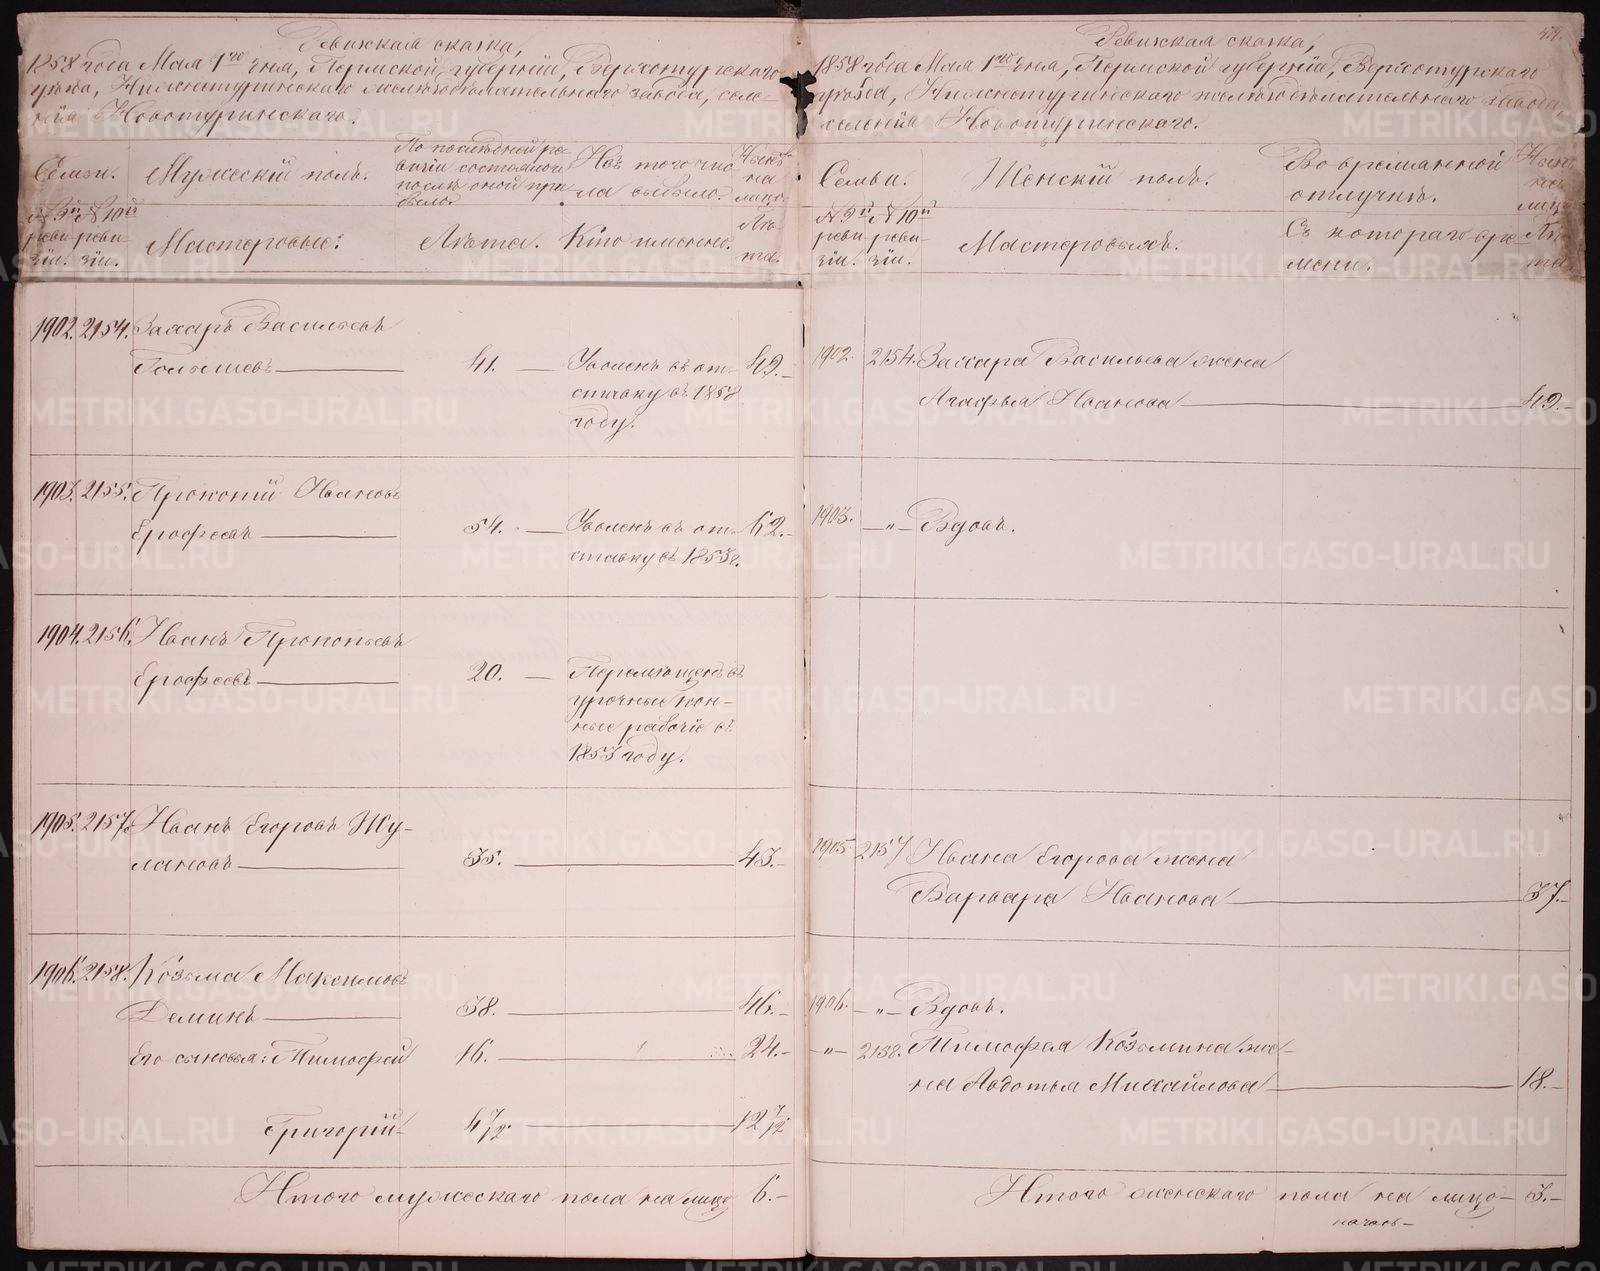 Ревижская сказка,
1858 года Мая 1го дня, Пермской губернiи, Верхотурскаго
уѣзда, Нижнетуринскаго желѣзодѣлательнаго завода, селе-
нiя Новотуринскаго.
Семьи.
Мужескiй полъ.
По послѣдней ре-
визiи состояло и
послѣ оной при-
было.
Изъ того чис-
ла выбыло.
Нынѣ
на
лицо.
№ 9й № 10й
реви- реви-
зiи. зiи.
Мастеровые:
Лѣта.
Кто именно.
Лѣ-
та.
1902. 2154. Захаръ Васильевъ
Голышевъ 41. Уволенъ въ от- 49.
ставку въ 1858
году.
1903. 2155. Прокопiй Ивановъ
Ерофеевъ 54. Уволенъ въ от- 62.
ставку въ 1853 г.
1904. 2156. Иванъ Прокопьевъ
Ерофеевъ 20. Перемѣщенъ въ
урочные кон-
ные рабочiе въ
1853 году.
1905. 2157. Иванъ Егоровъ Жу-
лановъ 35. 43.
1906. 2158. Козьма Максимовъ
Деминъ 38. 46.
Его сыновья: Тимофей 16. 24.
Григорiй 4 7/12 12 7/12
Итого мужескаго пола на лицо 6.
54.
Ревижская сказка,
1858 года Мая 1го дня, Пермской губернiи, Верхотурскаго
уѣзда, Нижнетуринскаго желѣзодѣлательнаго завода
селенiя Новотуринскаго.
Семьи.
Женскiй полъ.
Во временной
отлучкѣ.
Нынѣ
на
лицо
№ 9й № 10й
реви- реви-
зiи. зiи.
Мастеровыхъ.
Съ котораго вре-
мени.
Лѣ-
та
1902. 2154. Захара Васильева жена
Агафья Иванова 49.
1903. —"— Вдовъ.
1905 2157 Ивана Егорова жена
Варвара Иванова 37.
1906. —"— Вдовъ.
—"— 2158. Тимофея Козьмина же-
на Авдотья Михайлова 18.
Итого женскаго пола на лицо 3.
METRIKI.GASO-URAL.RU